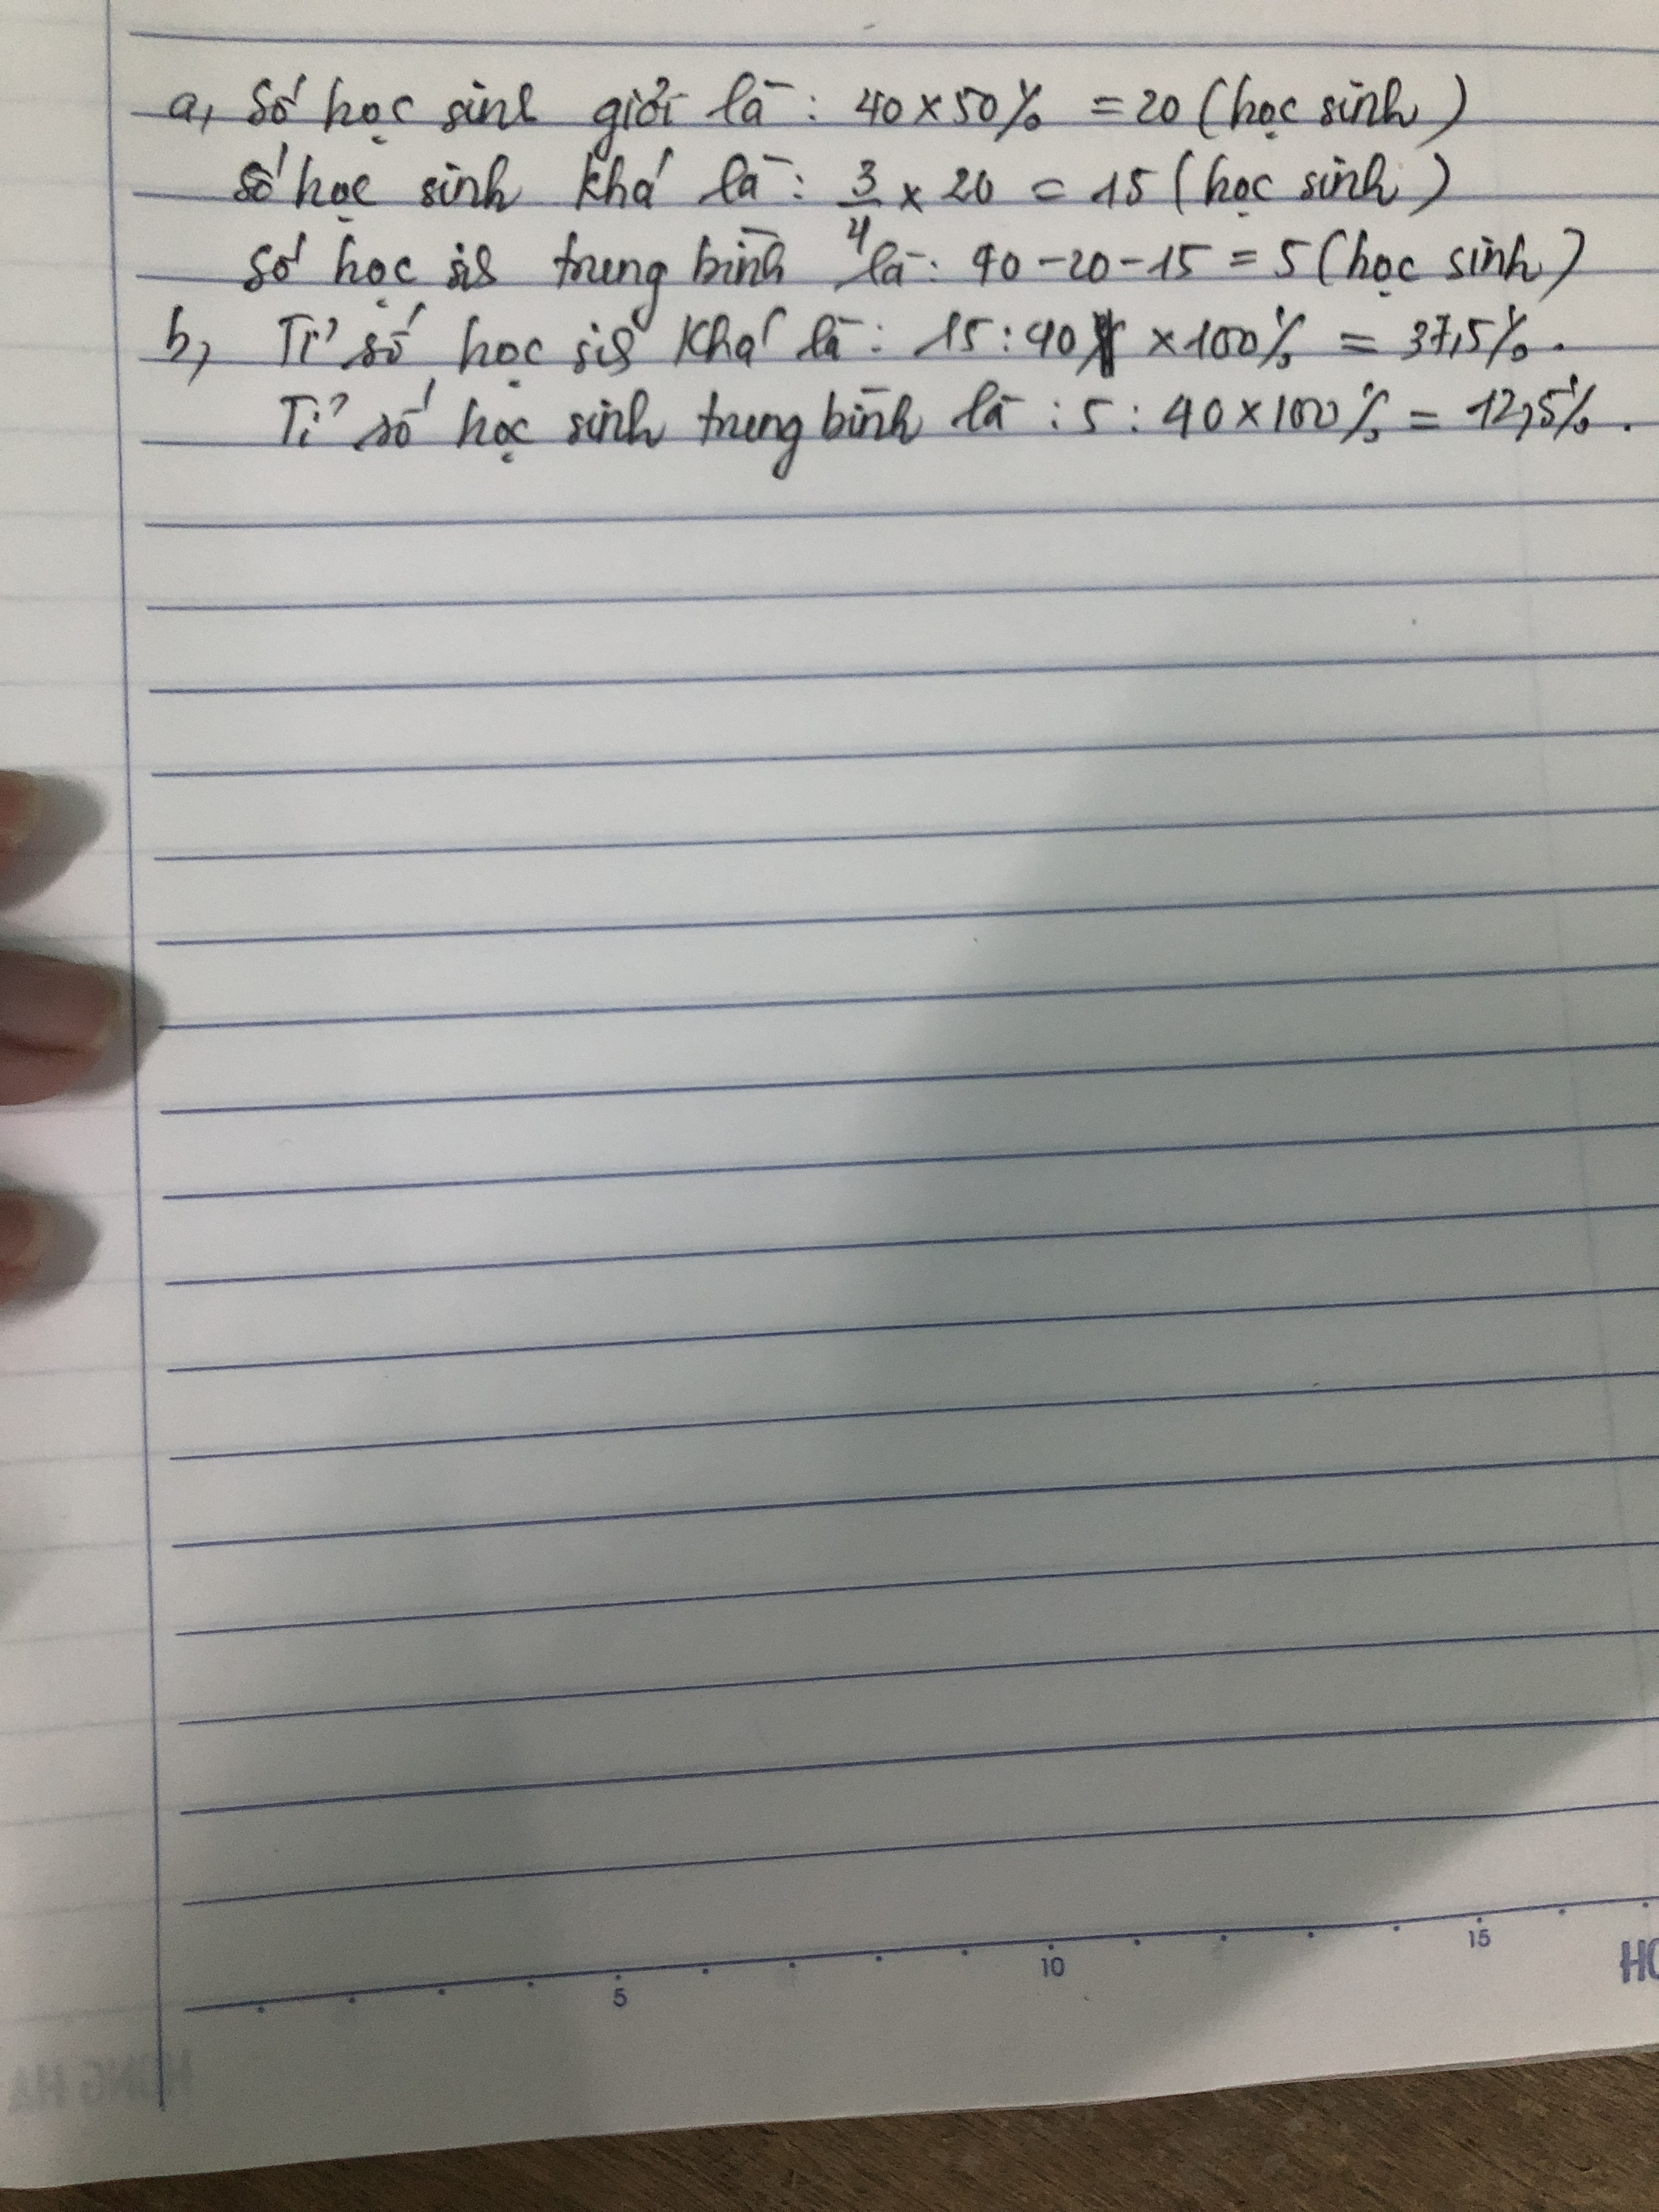 a, Số học sinh giỏi là : 40 x 50% = 20 (học sinh)
Số học sinh khá là : 3/4 x 20 = 15 (học sinh)
Số học sis trung bình là : 40 - 20 - 15 = 5 (học sinh)
b, Tỉ số học sis khá là : 15 : 40 x 100% = 37,5%.
Tỉ số học sinh trung bình là : 5 : 40 x 100% = 12,5%.
5 10 15
HO
HONG HA